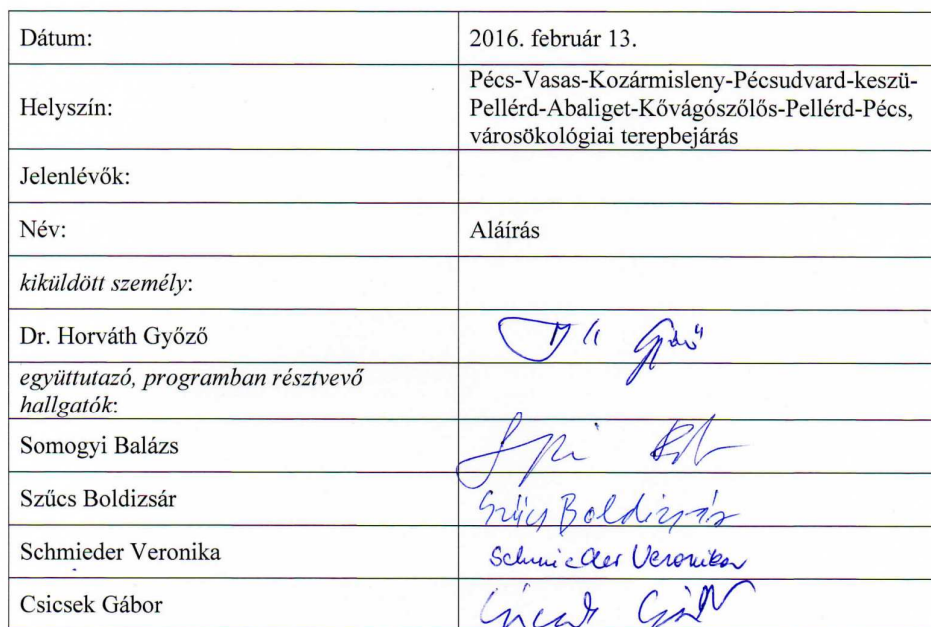 Dátum: 2016. február 13.
Helyszín: Pécs-Vasas-Kozármisleny-Pécsudvard-keszü-
Pellérd-Abaliget-Kővágószőlős-Pellérd-Pécs,
városökológiai terepbejárás
Jelenlévők:
Név: Aláírás
kiküldött személy:
Dr. Horváth Győző
együttutazó, programban résztvevő
hallgatók:
Somogyi Balázs
Szűcs Boldizsár Szűcs Boldizsár
Schmieder Veronika Schmieder Veronika
Csicsek Gábor